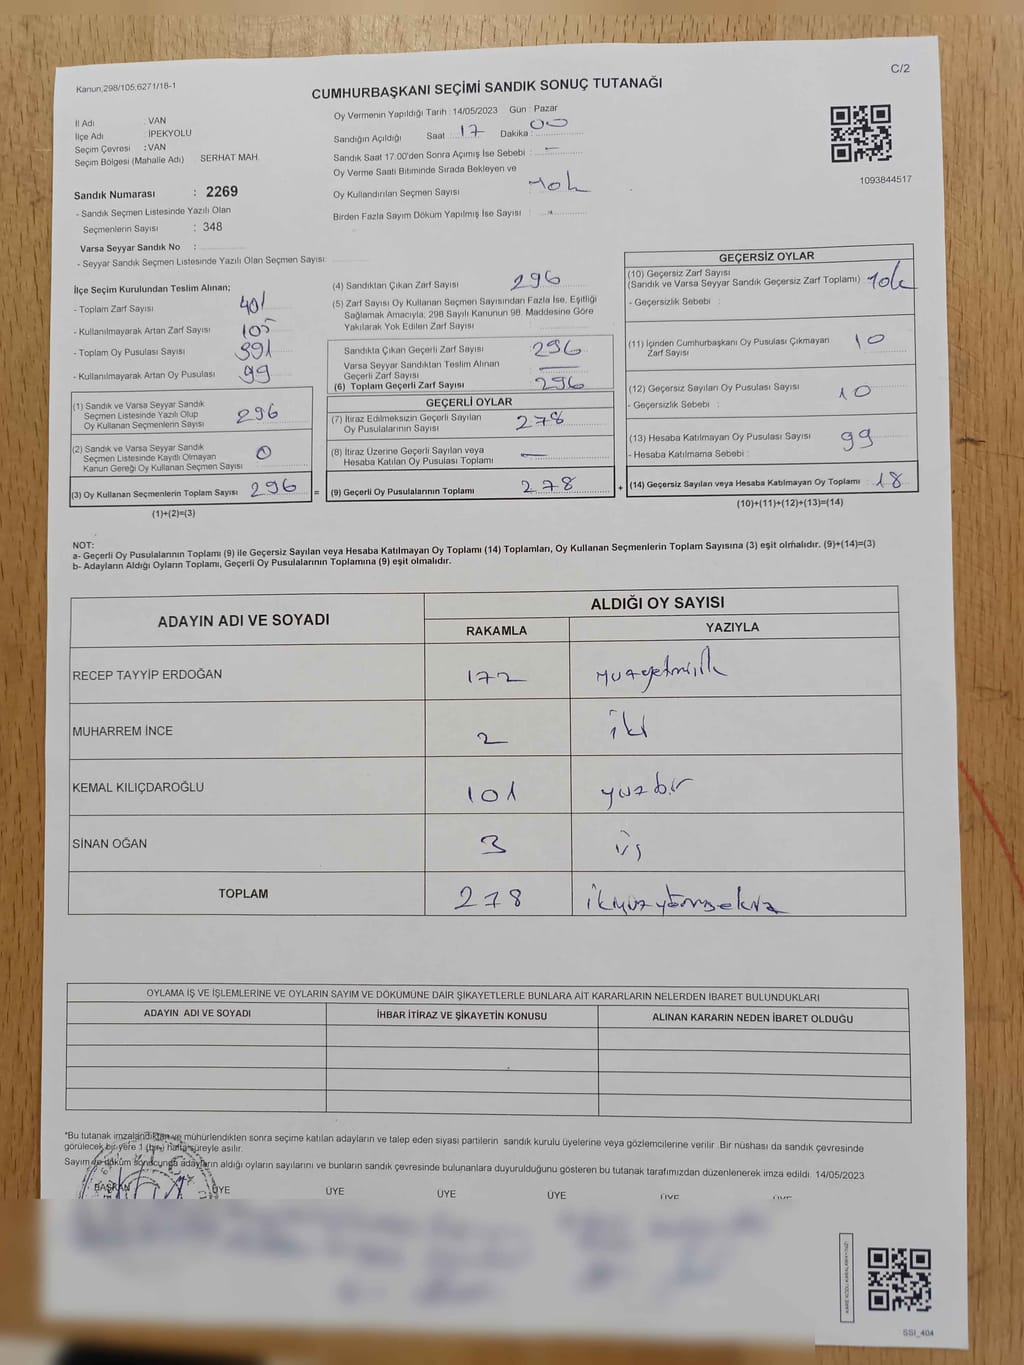 Kanun;298/105;6271/16-1
C/2
CUMHURBAŞKANI SEÇİMİ SANDIK SONUÇ TUTANAĞI
İl Adı : VAN
İlçe Adı : İPEKYOLU
Seçim Çevresi : VAN
Seçim Bölgesi (Mahalle Adı) SERHAT MAH.
Sandık Numarası : 2269
- Sandık Seçmen Listesinde Yazılı Olan
Seçmenlerin Sayısı : 348
Varsa Seyyar Sandık No :
- Seyyar Sandık Seçmen Listesinde Yazılı Olan Seçmen Sayısı:
Oy Vermenin Yapıldığı Tarih : 14/05/2023 Gün : Pazar
Sandığın Açıldığı Saat : 17 Dakika : 00
Sandık Saat 17.00'den Sonra Açımış İse Sebebi : —
Oy Verme Saati Bitiminde Sırada Bekleyen ve
Oy Kullandırılan Seçmen Sayısı yok
Birden Fazla Sayım Döküm Yapılmış İse Sayısı :
1093844517
İlçe Seçim Kurulundan Teslim Alınan;
- Toplam Zarf Sayısı 401
- Kullanılmayarak Artan Zarf Sayısı 105
- Toplam Oy Pusulası Sayısı 391
- Kullanılmayarak Artan Oy Pusulası 99
(1) Sandık ve Varsa Seyyar Sandık
Seçmen Listesinde Yazılı Olup
Oy Kullanan Seçmenlerin Sayısı 296
(2) Sandık ve Varsa Seyyar Sandık
Seçmen Listesinde Kayıtlı Olmayan
Kanun Gereği Oy Kullanan Seçmen Sayısı 0
(3) Oy Kullanan Seçmenlerin Toplam Sayısı 296 =
(1)+(2)=(3)
(4) Sandıktan Çıkan Zarf Sayısı 296
(5) Zarf Sayısı Oy Kullanan Seçmen Sayısından Fazla İse, Eşitliği
Sağlamak Amacıyla; 298 Sayılı Kanunun 98. Maddesine Göre
Yakılarak Yok Edilen Zarf Sayısı
Sandıkta Çıkan Geçerli Zarf Sayısı 296
Varsa Seyyar Sandıktan Teslim Alınan
Geçerli Zarf Sayısı —
(6) Toplam Geçerli Zarf Sayısı 296
GEÇERLİ OYLAR
(7) İtiraz Edilmeksizin Geçerli Sayılan
Oy Pusulalarının Sayısı 278
(8) İtiraz Üzerine Geçerli Sayılan veya
Hesaba Katılan Oy Pusulası Toplamı —
(9) Geçerli Oy Pusulalarının Toplamı 278 +
GEÇERSİZ OYLAR
(10) Geçersiz Zarf Sayısı
(Sandık ve Varsa Seyyar Sandık Geçersiz Zarf Toplamı) yok
- Geçersizlik Sebebi :
(11) İçinden Cumhurbaşkanı Oy Pusulası Çıkmayan
Zarf Sayısı 10
(12) Geçersiz Sayılan Oy Pusulası Sayısı 10
- Geçersizlik Sebebi :
(13) Hesaba Katılmayan Oy Pusulası Sayısı 99
- Hesaba Katılmama Sebebi :
(14) Geçersiz Sayılan veya Hesaba Katılmayan Oy Toplamı : 18
(10)+(11)+(12)+(13)=(14)
NOT:
a- Geçerli Oy Pusulalarının Toplamı (9) ile Geçersiz Sayılan veya Hesaba Katılmayan Oy Toplamı (14) Toplamları, Oy Kullanan Seçmenlerin Toplam Sayısına (3) eşit olmalıdır. (9)+(14)=(3)
b- Adayların Aldığı Oyların Toplamı, Geçerli Oy Pusulalarının Toplamına (9) eşit olmalıdır.
ADAYIN ADI VE SOYADI
ALDIĞI OY SAYISI
RAKAMLA YAZIYLA
RECEP TAYYİP ERDOĞAN 172 yuzyetmişik
MUHARREM İNCE 2 iki
KEMAL KILIÇDAROĞLU 101 yuzbir
SİNAN OĞAN 3 üş
TOPLAM 278
OYLAMA İŞ VE İŞLEMLERİNE VE OYLARIN SAYIM VE DÖKÜMÜNE DAİR ŞİKAYETLERLE BUNLARA AİT KARARLARIN NELERDEN İBARET BULUNDUKLARI
ADAYIN ADI VE SOYADI İHBAR İTİRAZ VE ŞİKAYETİN KONUSU ALINAN KARARIN NEDEN İBARET OLDUĞU
*Bu tutanak imzalandıktan ve mühürlendikten sonra seçime katılan adayların ve talep eden siyasi partilerin sandık kurulu üyelerine veya gözlemcilerine verilir. Bir nüshası da sandık çevresinde
görülecek bir yere 1 (bir) hafta süreyle asılır.
Sayım ve döküm sonucunda adayların aldığı oyların sayılarını ve bunların sandık çevresinde bulunanlara duyurulduğunu gösteren bu tutanak tarafımızdan düzenlenerek imza edildi. 14/05/2023
BAŞKAN ÜYE ÜYE ÜYE ÜYE ÜYE ÜYE
SSI_404